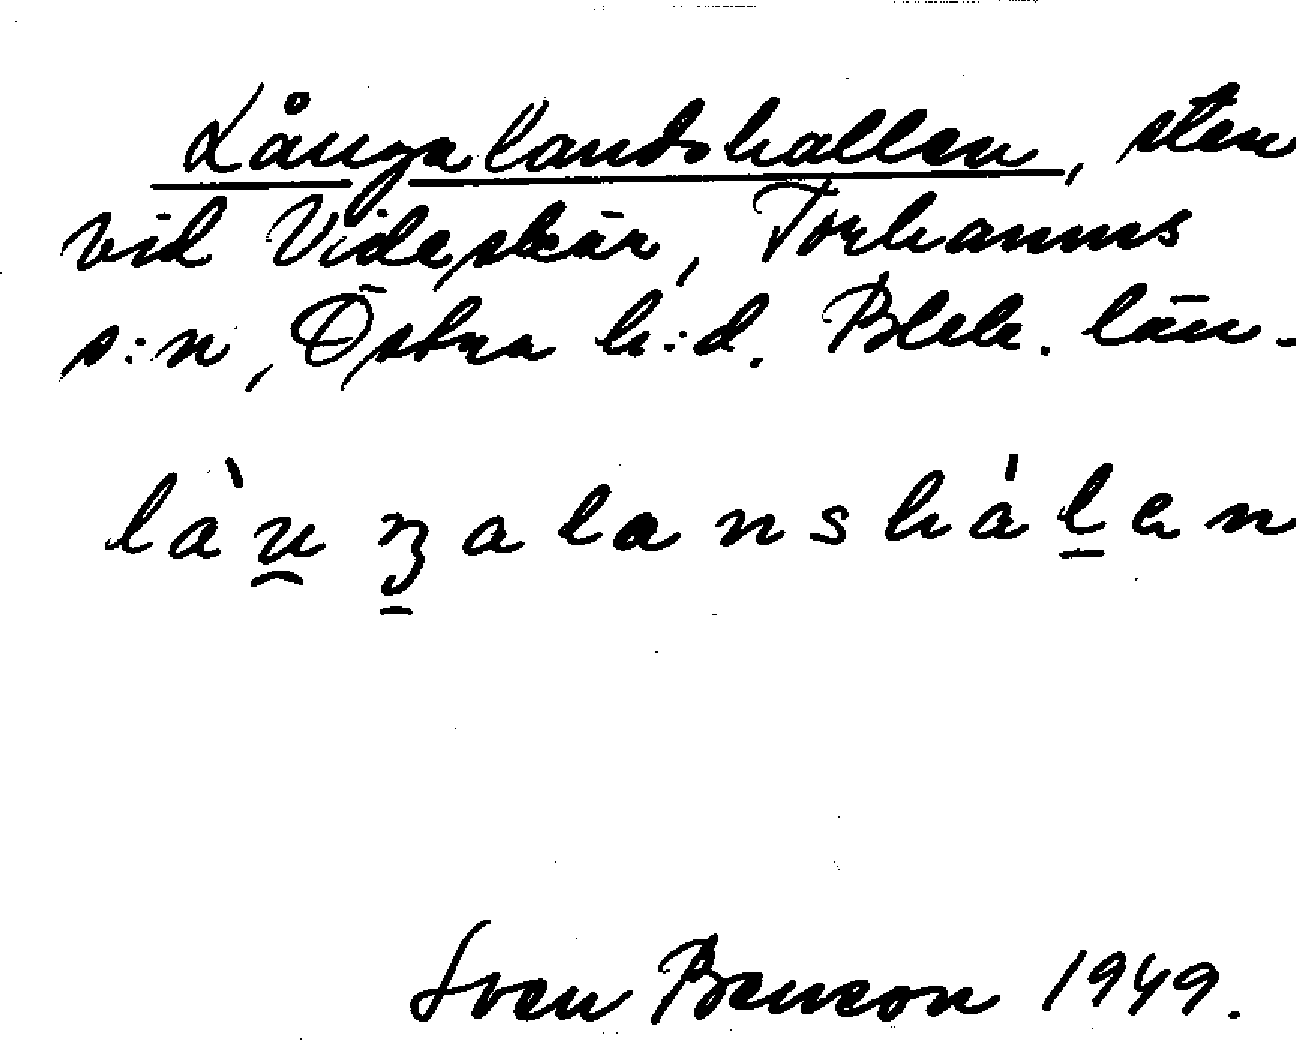 Långalandshallen, sten
vid Videskär, Torhamns
s:n, Östra h:d. Blek. län.
Sven Benson 1949.